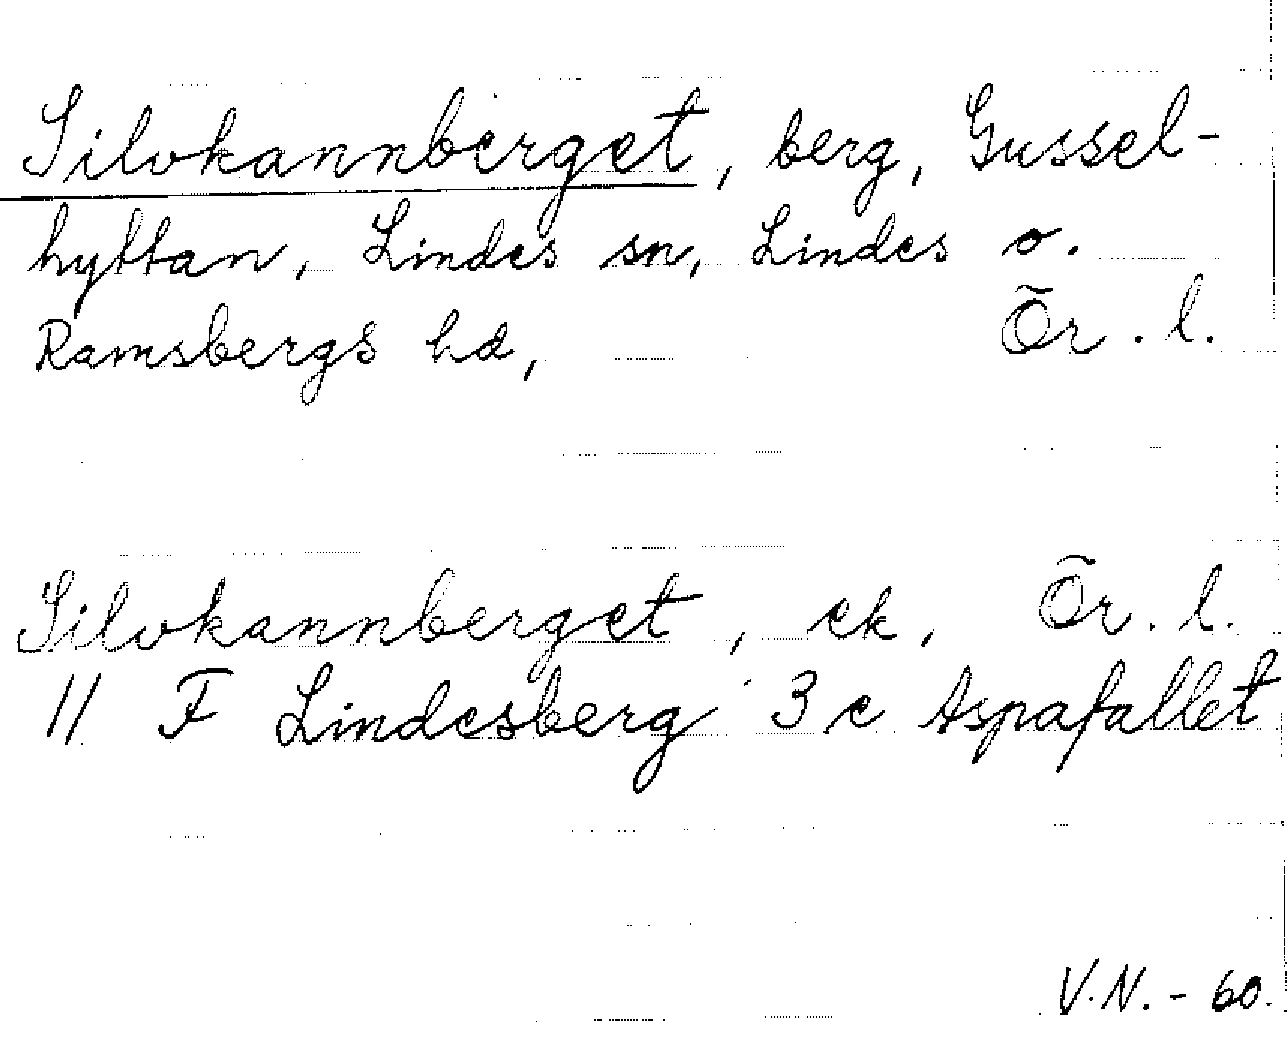 Silvkannberget, berg, Gussel-
hyttan, Lindes sn, Lindes o.
Ramsbergs hd, Ör. l.
Silvkannberget, ek, Ör. l.
11 F Lindesberg 3 c Aspafallet
V.N. - 60.